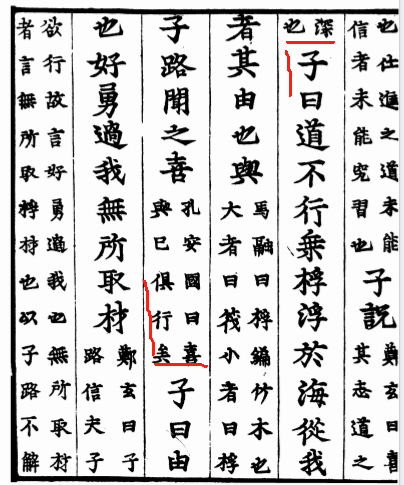 也仕進之道未能信者未能究習也子説鄭玄曰喜其志道之
深也子曰道不行乗桴浮於海從我
者其由也與馬融曰桴編竹木也大者曰筏小者曰桴
子路聞之喜孔安國曰喜與已俱行矣子曰由
也好勇過我無所取材鄭玄曰子路信夫子
欲行故言好勇過我也無所取材者言無所取桴材也以子路不解